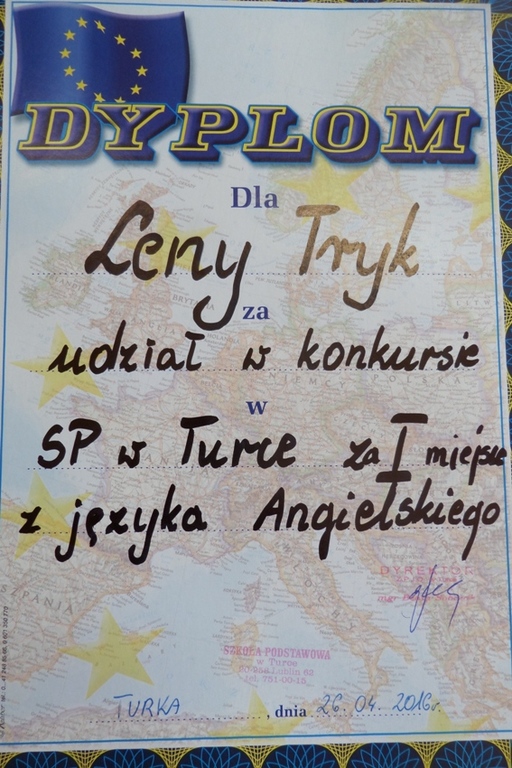 DYPLOM
Dla
Leny Tryk
za
udział w konkursie
w
SP w Turce za I miejsce
z języka Angielskiego
DYREKTOR
SZKOŁA PODSTAWOWA
w Turce
20-258 Lublin 62
tel. 751-00-15
TURKA, dnia 26. 04. 2016r.